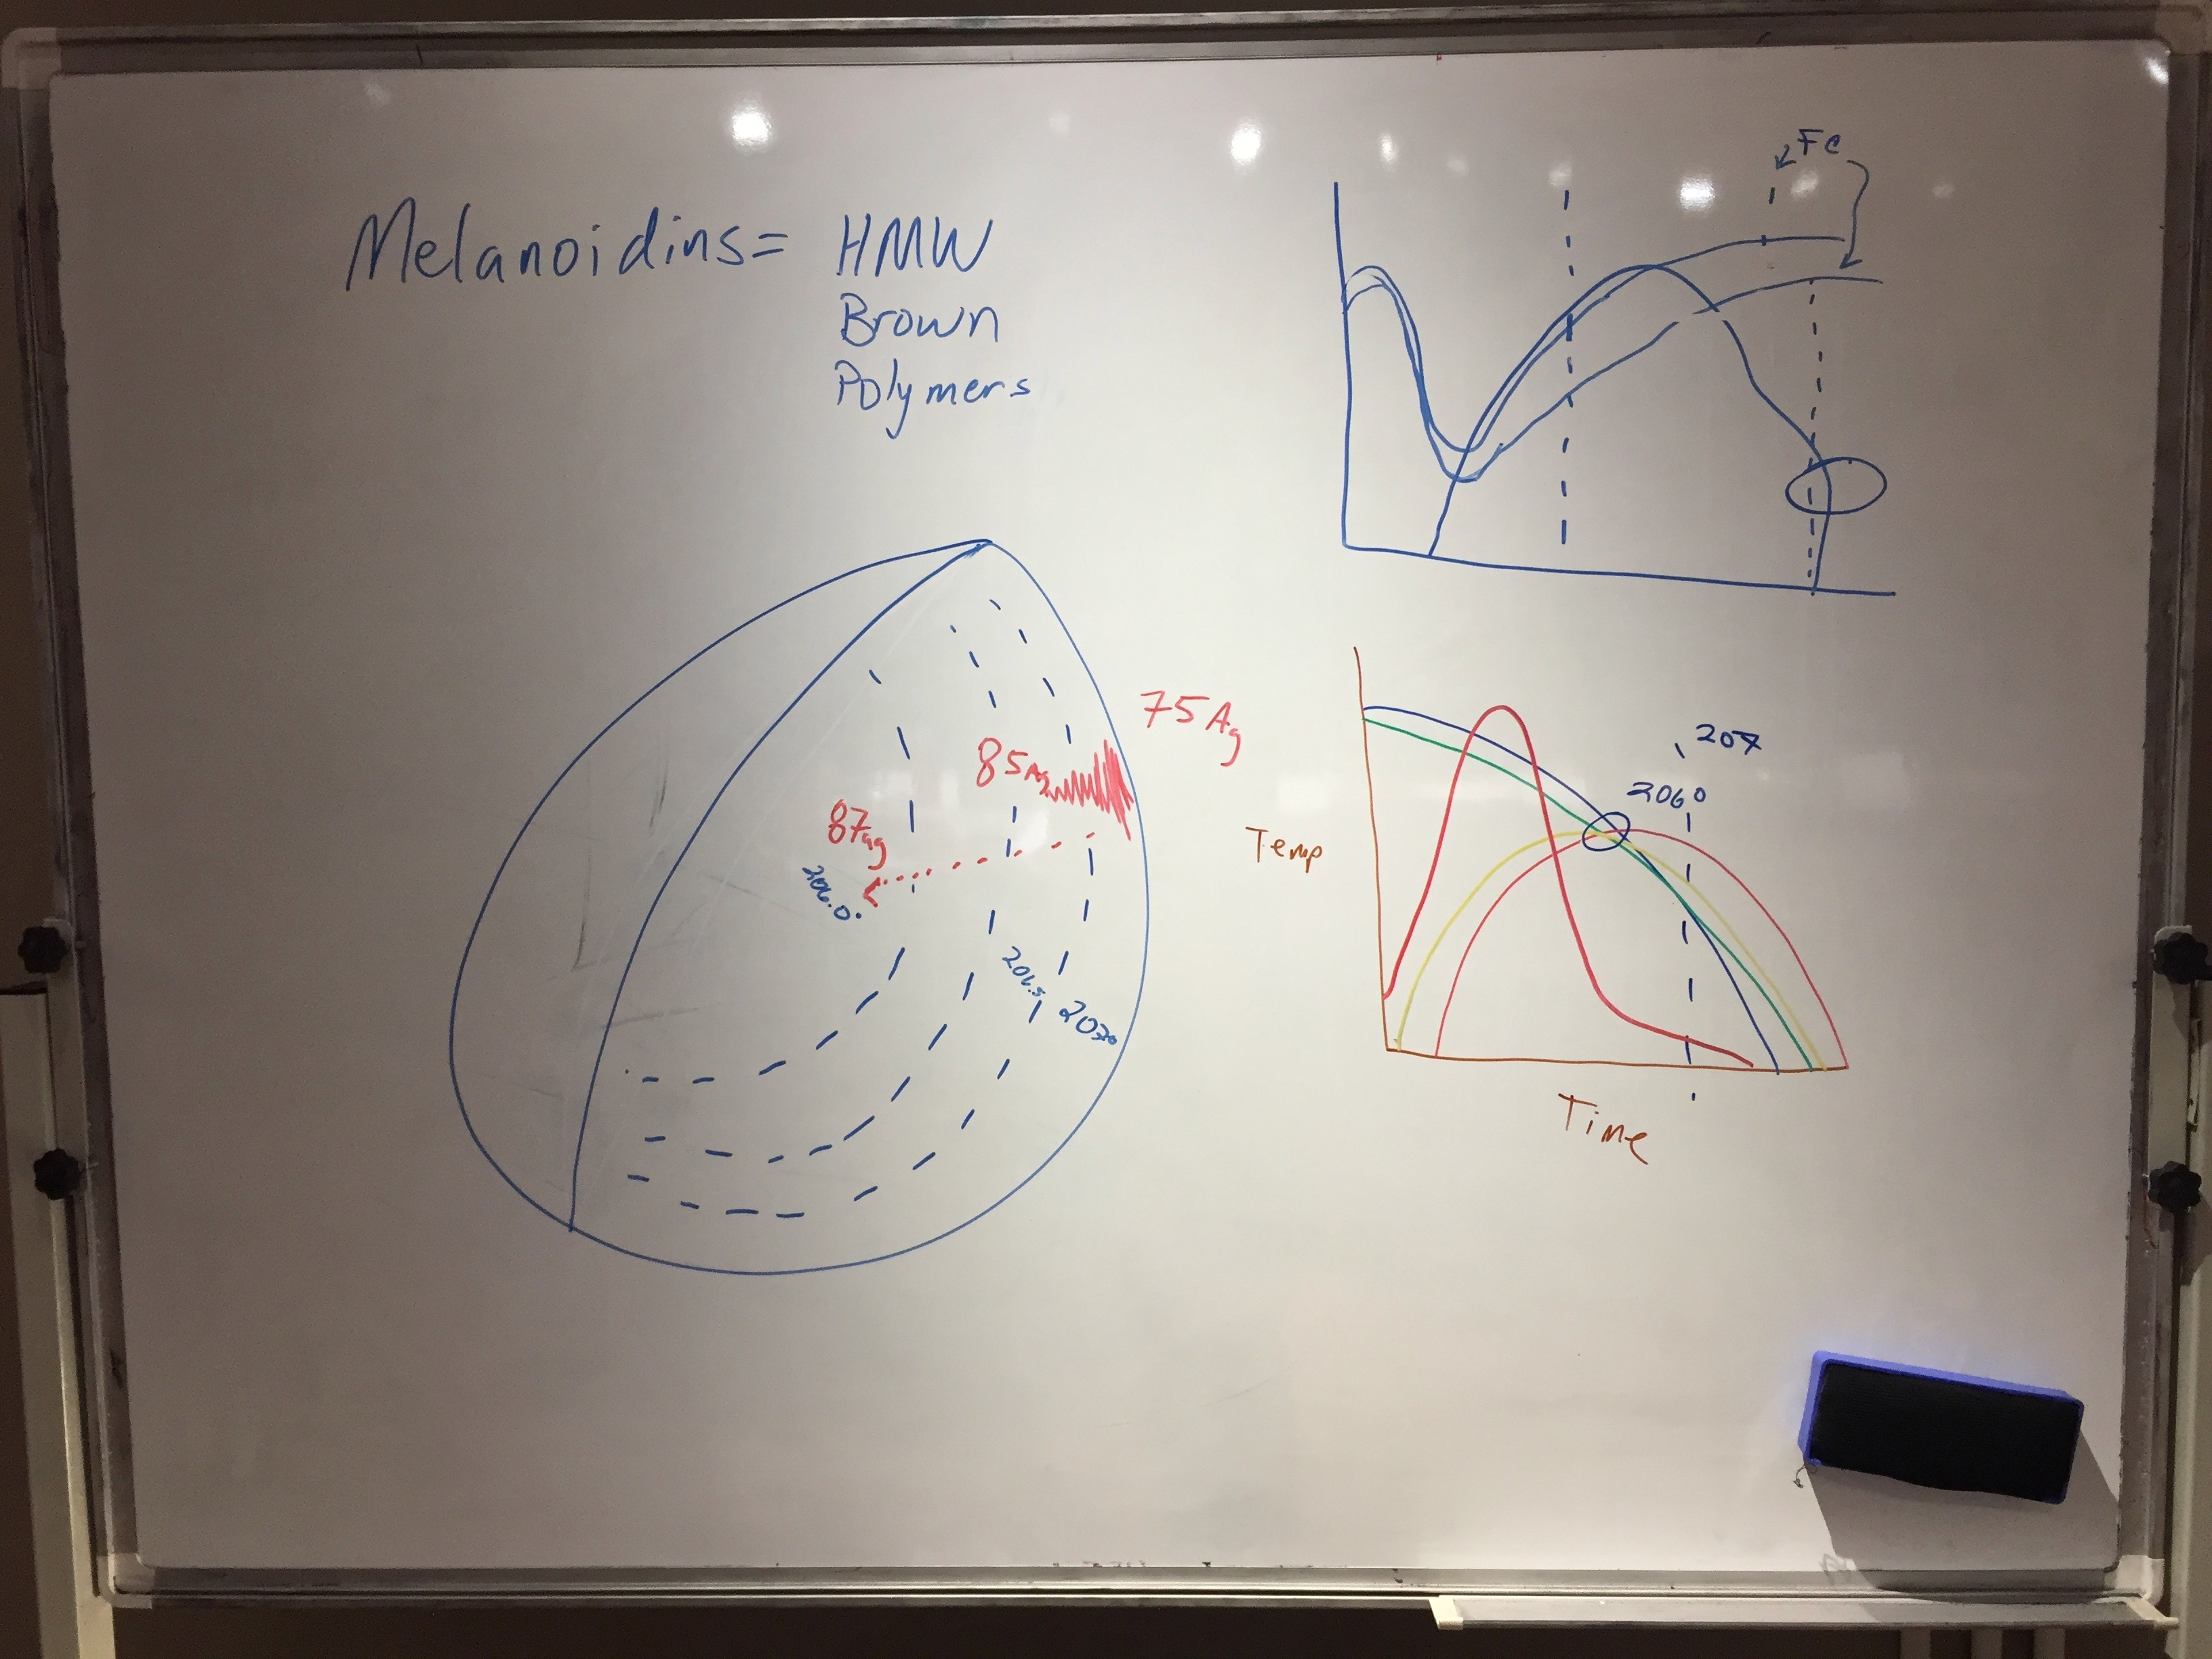 Melanoidins = HMW
Brown
Polymers
FC
75 Ag
85 Ag
87 ag
206.0°
206.5
207°
Temp
207
206°
Time